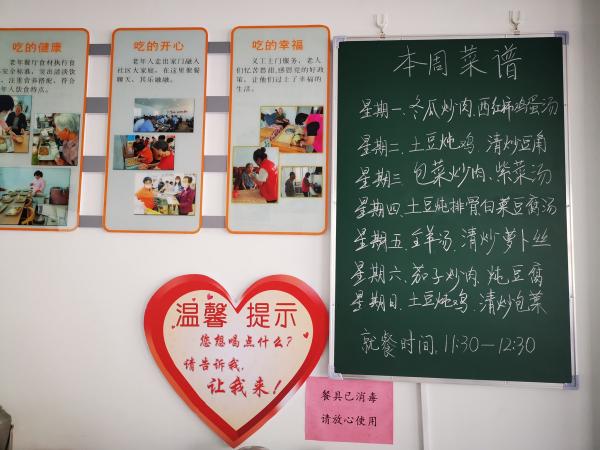 吃的健康
老年餐厅食材执行食
安全标准，突出清淡饮
、注重营养搭配，符合
年人饮食特点。
吃的开心
老年人走出家门融入
社区大家庭，在这里聚餐
聊天、其乐融融。
吃的幸福
义工上门服务，老人
们忆苦思甜，感恩党的好政
策，让他们过上了幸福的
生活。
本周菜谱
星期一、冬瓜炒肉、西红柿鸡蛋汤
星期二、土豆炖鸡、清炒豆角
星期三、包菜炒肉、紫菜汤
星期四、土豆炖排骨白菜豆腐汤
星期五、全羊汤、清炒萝卜丝
星期六、茄子炒肉、炖豆腐
星期日、土豆炖鸡、清炒包菜
就餐时间，11:30—12:30
温馨 提示
您想喝点什么？
请告诉我，
让我来！
餐具已消毒
请放心使用